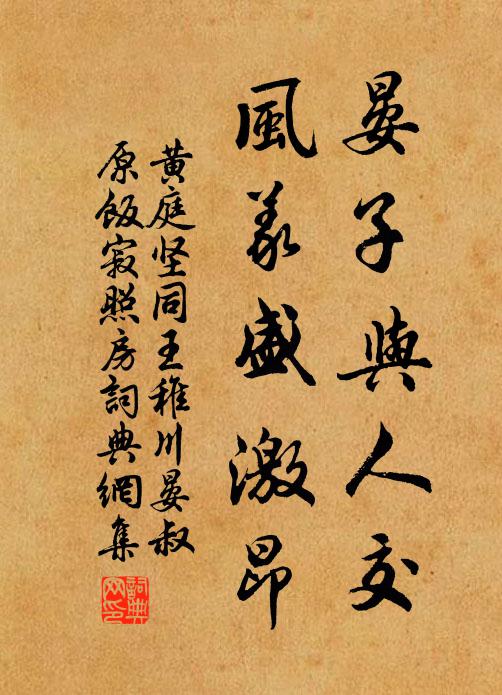 晏子與人交
風義盛激昂
黄庭坚同王稚川晏叔
原飯寂照房詞典網集
詞典網印